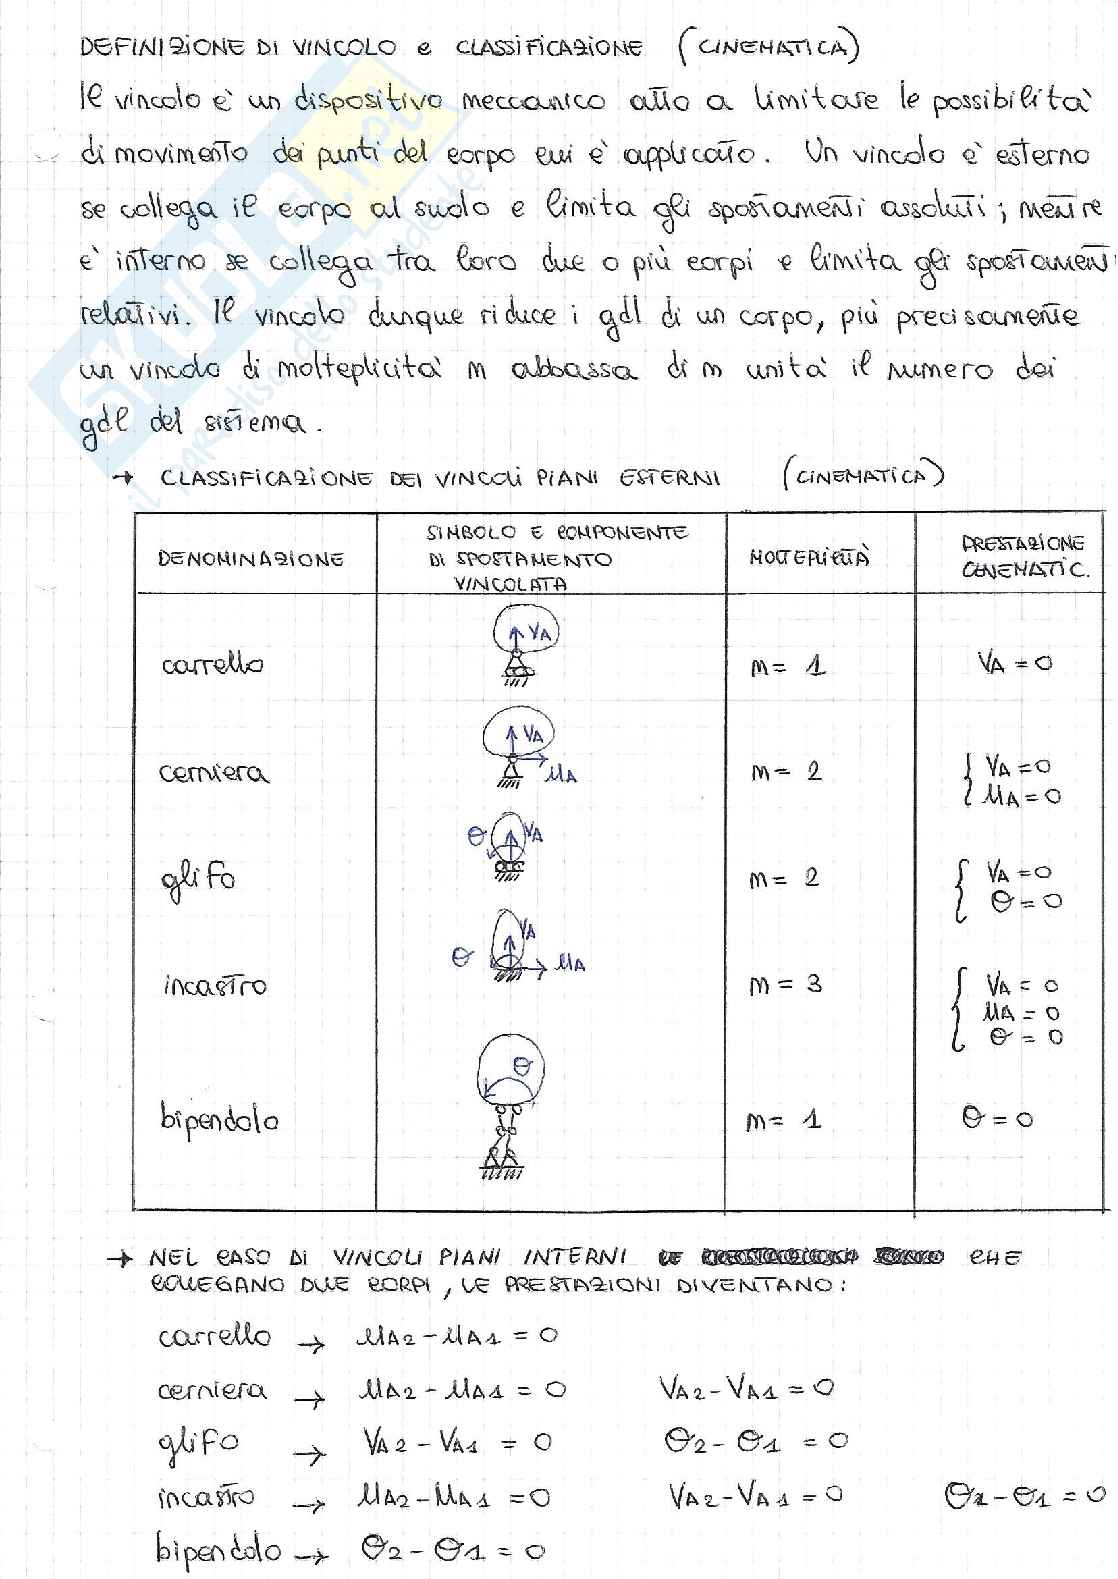 DEFINIZIONE DI VINCOLO e CLASSIFICAZIONE (CINEMATICA)
Il vincolo è un dispositivo meccanico atto a limitare le possibilità
di movimento dei punti del corpo cui è applicato. Un vincolo è esterno
se collega il corpo al suolo e limita gli spostamenti assoluti; mentre
è interno se collega tra loro due o più corpi e limita gli spostamenti
relativi. Il vincolo dunque riduce i gdl di un corpo, più precisamente
un vincolo di molteplicità m abbassa di m unità il numero dei
gdl del sistema.
→ CLASSIFICAZIONE DEI VINCOLI PIANI ESTERNI (CINEMATICA)
DENOMINAZIONE
SIMBOLO E COMPONENTE
DI SPOSTAMENTO
VINCOLATA
MOLTEPLICITÀ
PRESTAZIONE
CINEMATIC.
carrello
VA
m = 1
VA = 0
cerniera
VA
UA
m = 2
VA = 0
UA = 0
glifo
θ VA
m = 2
VA = 0
θ = 0
incastro
VA
θ UA
m = 3
VA = 0
UA = 0
θ = 0
bipendolo
θ
m = 1
θ = 0
→ NEL CASO DI VINCOLI PIANI INTERNI CHE
COLLEGANO DUE CORPI, LE PRESTAZIONI DIVENTANO:
carrello → UA2 - UA1 = 0
cerniera → UA2 - UA1 = 0 VA2 - VA1 = 0
glifo → VA2 - VA1 = 0 θ2 - θ1 = 0
incastro → UA2 - UA1 = 0 VA2 - VA1 = 0 θ2 - θ1 = 0
bipendolo → θ2 - θ1 = 0
SKUOLA.net
il paradiso dello studente